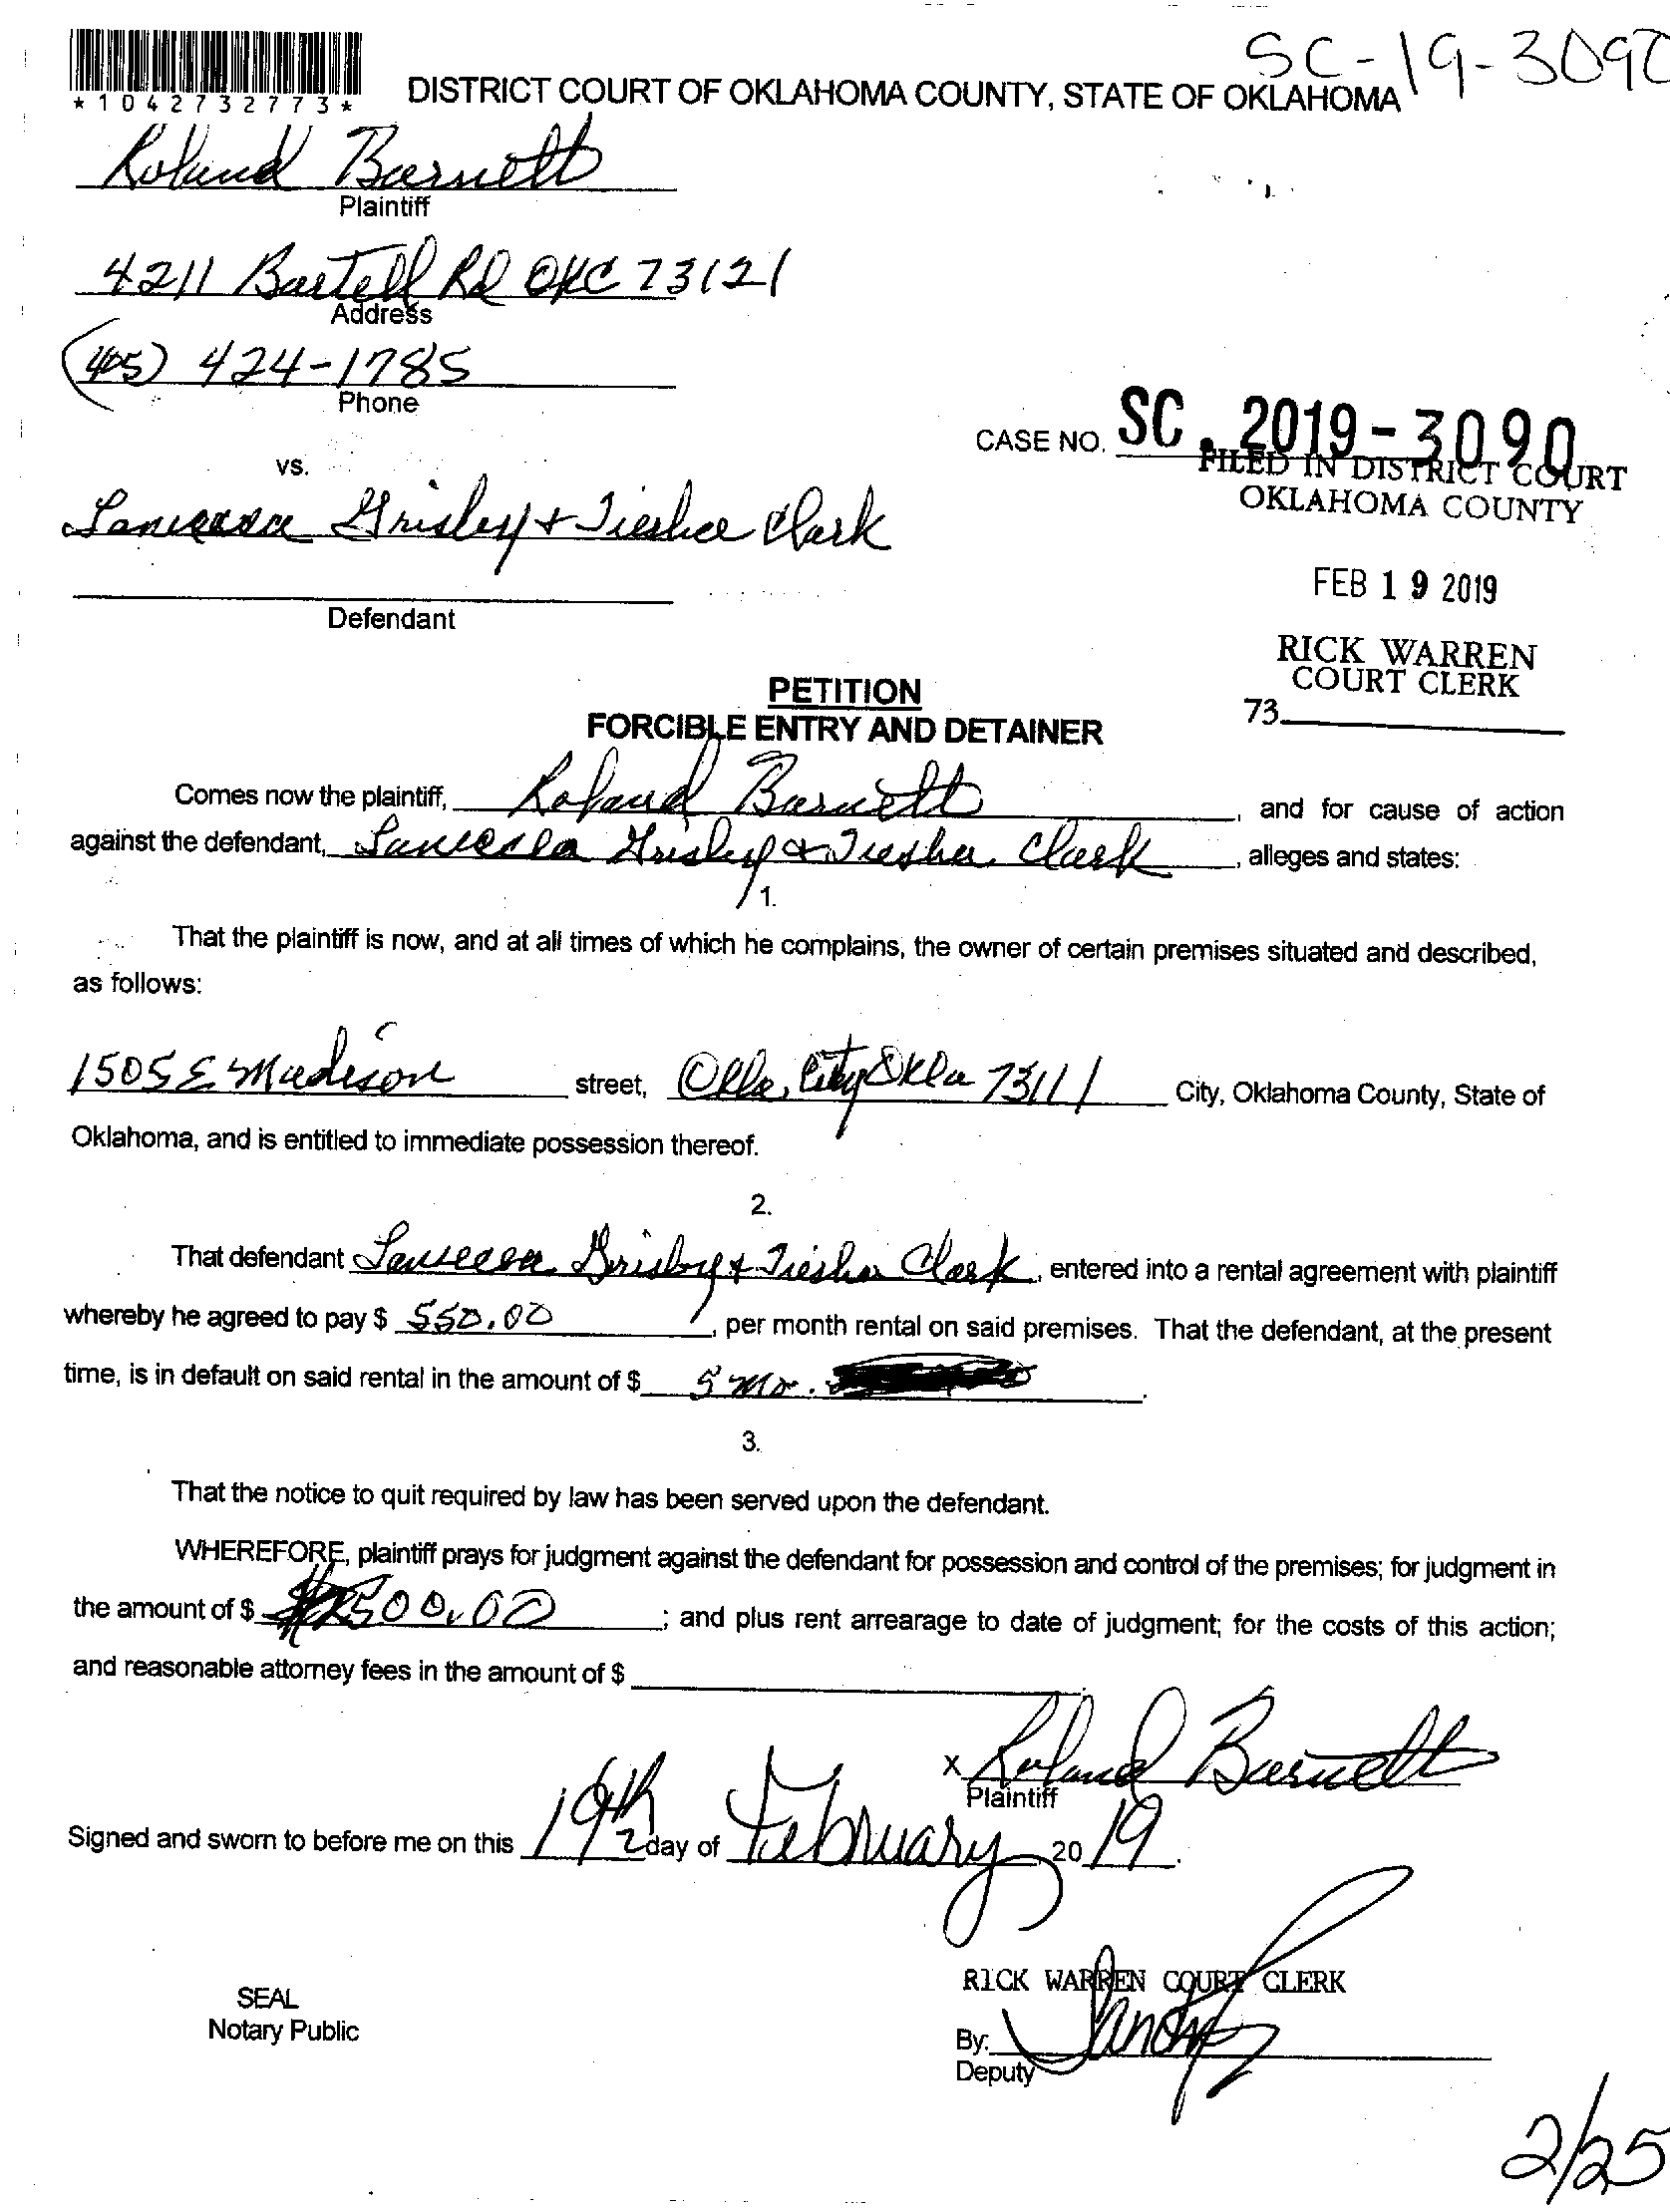 SC-19-3090
*1042732773*
DISTRICT COURT OF OKLAHOMA COUNTY, STATE OF OKLAHOMA
Roland Barnett
Plaintiff
4211 Bartell Rd OKC 73121
Address
(405) 424-1785
Phone
CASE NO. SC. 2019-3090
vs.
FILED IN DISTRICT COURT
OKLAHOMA COUNTY
Grisby + Tiesha Clark
FEB 19 2019
Defendant
RICK WARREN
COURT CLERK
73.
PETITION
FORCIBLE ENTRY AND DETAINER
Comes now the plaintiff, Roland Barnett, and for cause of action
against the defendant, Grisby & Tiesha Clark, alleges and states:
1.
That the plaintiff is now, and at all times of which he complains, the owner of certain premises situated and described,
as follows:
1505 E Madison street, Okla, City Okla 73111 City, Oklahoma County, State of
Oklahoma, and is entitled to immediate possession thereof.
2.
That defendant Grisby & Tiesha Clark, entered into a rental agreement with plaintiff
whereby he agreed to pay $ 550.00, per month rental on said premises. That the defendant, at the present
time, is in default on said rental in the amount of $ 5 mo.
3.
That the notice to quit required by law has been served upon the defendant.
WHEREFORE, plaintiff prays for judgment against the defendant for possession and control of the premises; for judgment in
the amount of $ 2500.00; and plus rent arrearage to date of judgment; for the costs of this action;
and reasonable attorney fees in the amount of $
x Roland Barnett
Plaintiff
Signed and sworn to before me on this 19th day of February, 2019.
RICK WARREN COURT CLERK
SEAL
Notary Public
By:
Deputy
2/25